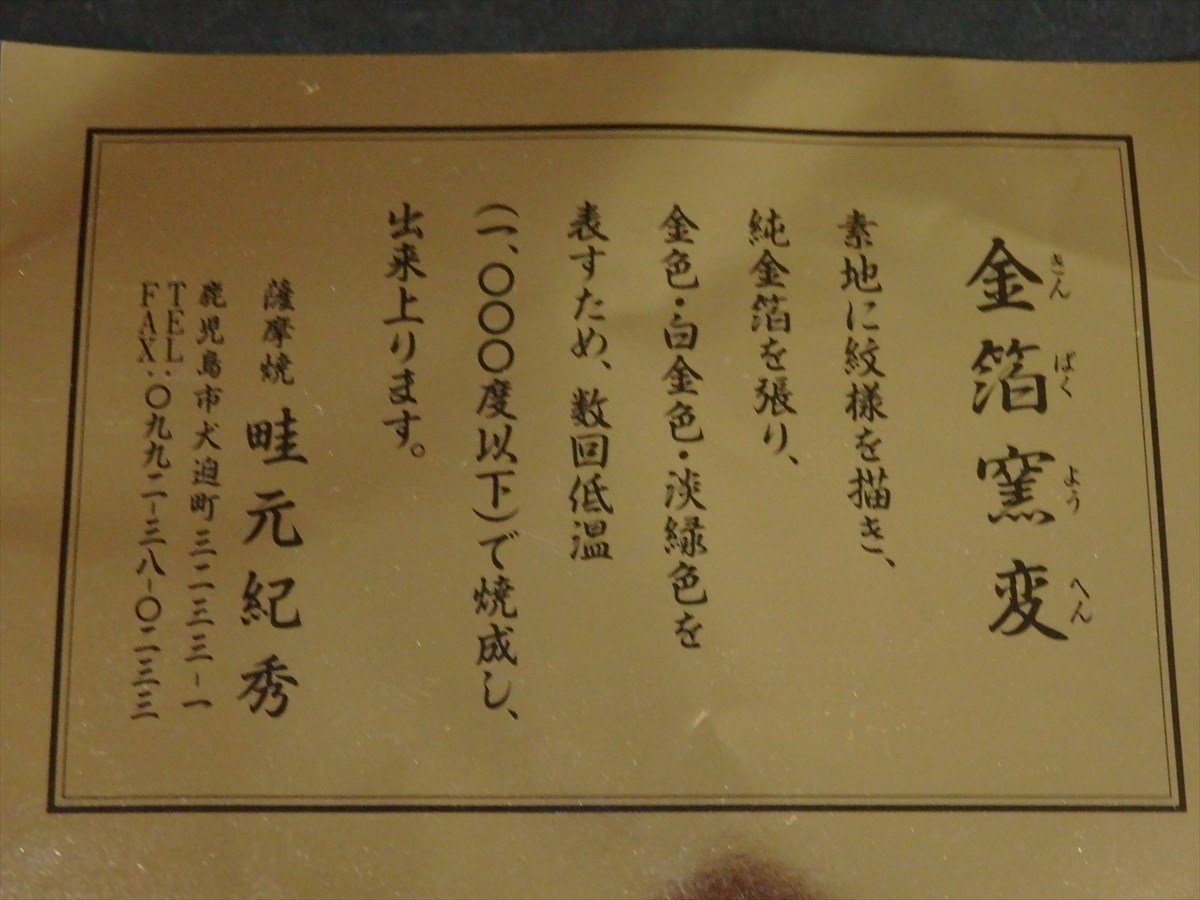 金箔窯変
きんばくようへん
素地に紋様を描き、
純金箔を張り、
金色・白金色・淡緑色を
表すため、数回低温
(一、〇〇〇度以下)で焼成し、
出来上ります。
薩摩焼 畦元紀秀
鹿児島市犬迫町三二三三-一
TEL
FAX:〇九九二-三八-〇二三三